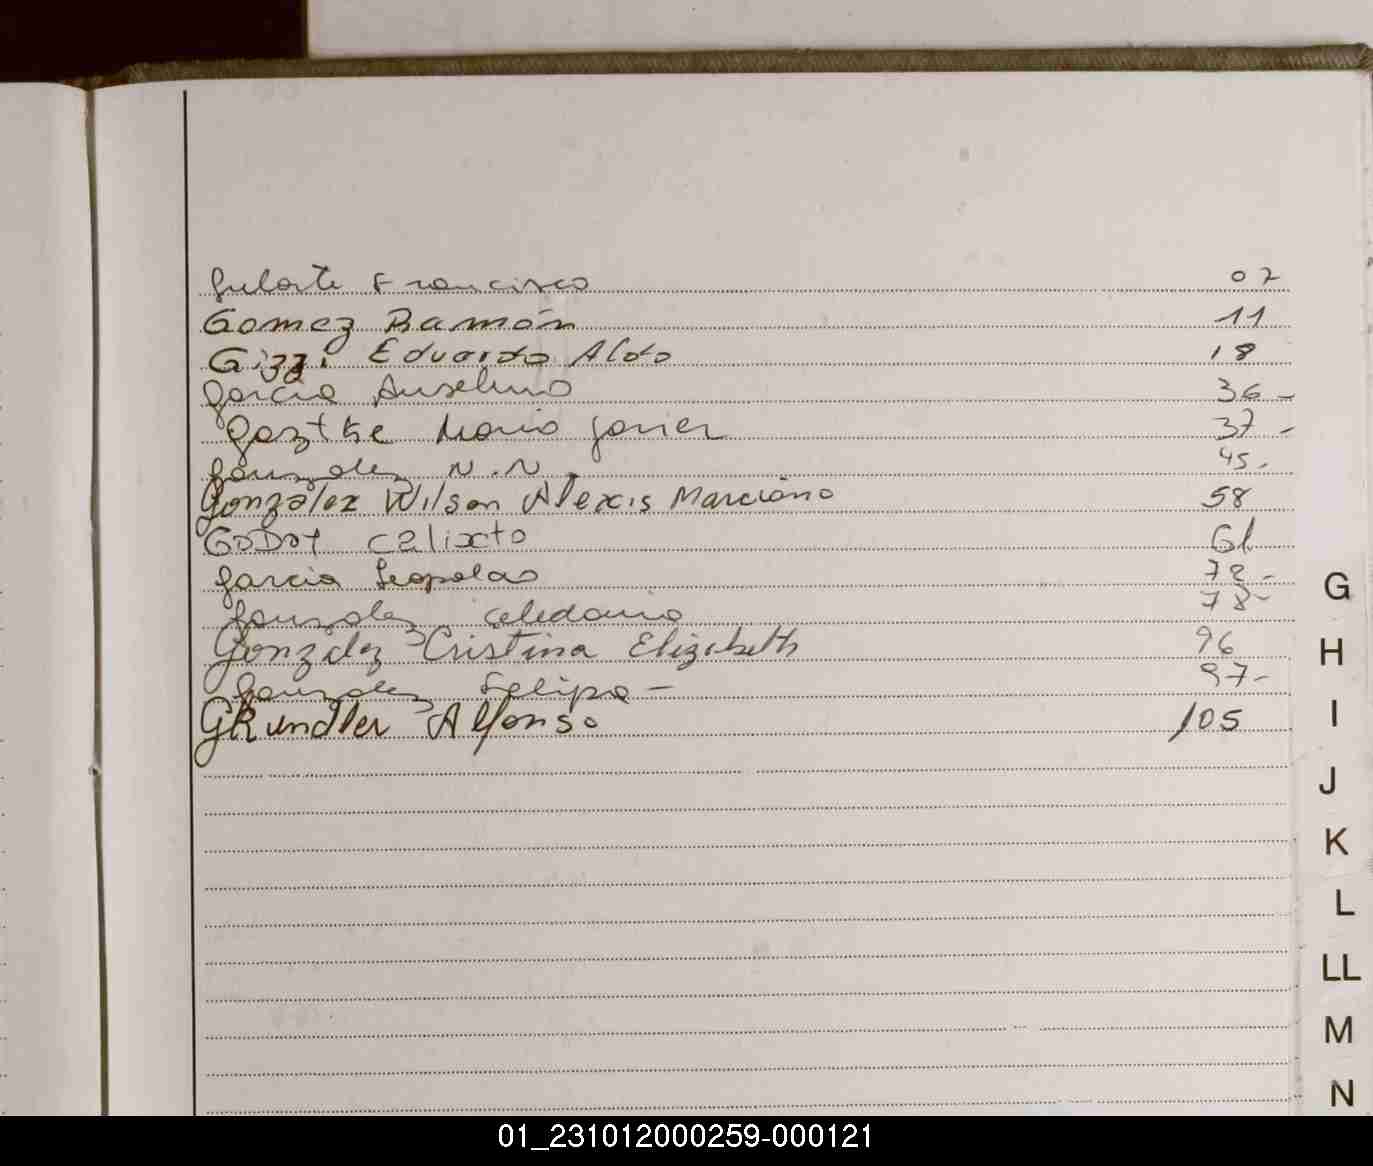 Gularte Francisco 07
Gomez Ramón 11
Gizzi Eduardo Aldo 18
Garcia Anselmo 36 -
Gaztke Mario Javier 37 -
Gonzalez N.N. 45 -
González Wilson Alexis Marciano 58
GODOY Calixto 61
Garcia Leopoldo 72 -
Gonzalez Celedonio 78 -
González Cristina Elizabeth 96
Gonzalez Felipa - 97 -
GRundler Alfonso 105
G
H
I
J
K
L
LL
M
N
01_231012000259-000121